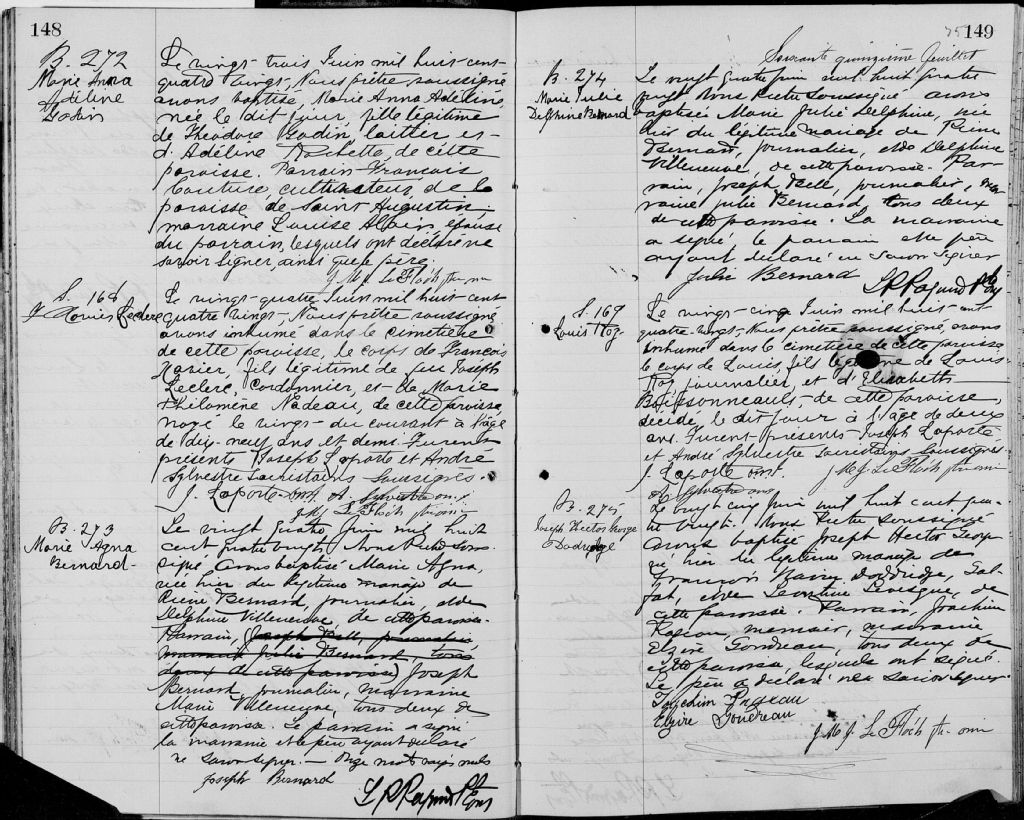 148
B. 272
Marie Anna
Adéline
Godin
Le vingt-trois Juin mil huit-cent-
quatre vingt, Nous prêtre soussigné
avons baptisé, Marie Anna Adéline,
née le dit jour, fille légitime
de Théodore Godin, laitier et
d'Adéline Rochette de cette
paroisse. Parrain François
Couture cultivateur de la
paroisse de Saint Augustin,
marraine Louise Allain, épouse
du parrain, lesquels ont déclaré ne
savoir signer, ainsi que le père.
J. M. J. Le Flóch ptr. omi
S. 168
F. X. Leclerc
Le vingt-quatre Juin mil huit cent
quatre vingt, Nous prêtre soussigné
avons inhumé dans le cimetière
de cette paroisse, le corps de François
Xavier, fils légitime de feu Joseph
Leclerc, Cordonnier, et de Marie
Philomène Nadeau, de cette paroisse,
noyé le vingt du courant à l'âge
de dix-neuf ans et demi. Furent
présents Joseph Laporte et André
Sylvestre Sacristains Soussignés.
J. Laporte omi. A. Sylvestre o.m.j.
J. M. J. Le Flóch ptr. omi
B. 273
Marie Agna
Bernard
Le vingt quatre Juin mil huit
cent quatre vingt, Nous Prêtre sous-
signé, avons baptisé Marie Agna,
née hier du légitime mariage de
Pierre Bernard, journalier, et de
Delphine Villeneuve, de cette paroisse.
Parrain, (Joseph Bell, journalier,
marraine Julie Bernard, tous
deux de cette paroisse) Joseph
Bernard, journalier, marraine
Marie Villeneuve, tous deux de
cette paroisse. Le parrain a signé
la marraine et le père ayant déclaré
ne savoir signer. — Onze mots rayés nuls
Joseph Bernard
149
Soixante quinzième feuillet
B. 274
Marie Julie
Delphine Bernard
Le vingt quatre Juin mil huit quatre
vingt Nous Prêtre Soussigné avons
baptisé Marie Julie Delphine, née
hier du légitime mariage de Pierre
Bernard, journalier, et de Delphine
Villeneuve, de cette paroisse. Par-
rain, Joseph Bell, journalier, mar-
raine Julie Bernard, tous deux
de cette paroisse. La marraine
a signé, le parrain et le père
ayant déclaré ne Savoir Signer
Julie Bernard
S. 169
Louis Roy
Le vingt-cinq Juin mil huit-cent
quatre-vingt, Nous prêtre soussigné, avons
inhumé dans le cimetière de cette paroisse
le corps de Louis, fils légitime de Louis
Roy, journalier, et d'Elisabeth
Boissonneault, de cette paroisse,
décédé le dit jour à l'âge de deux
ans. Furent présents Joseph Laporte
et André Sylvestre Sacristains Soussignés.
J. Laporte omi. J. M. J. Le Flóch ptr. omi
A. Sylvestre omj
B. 275
Joseph Hector George
Dodridge
Le vingt cinq Juin mil huit cent qua-
tre vingt. Nous Prêtre Soussigné
avons baptisé Joseph Hector George
né hier du légitime mariage de
François Dodridge,
et de Léontine Levesque, de
cette paroisse. Parrain, Joachim
marraine
Elzire Gondreau, tous deux de
cette paroisse, lesquels ont signé.
Le père a déclaré ne savoir signer
Joachim
Elzire Gondreau
J. M. J. Le Flóch ptr. omi